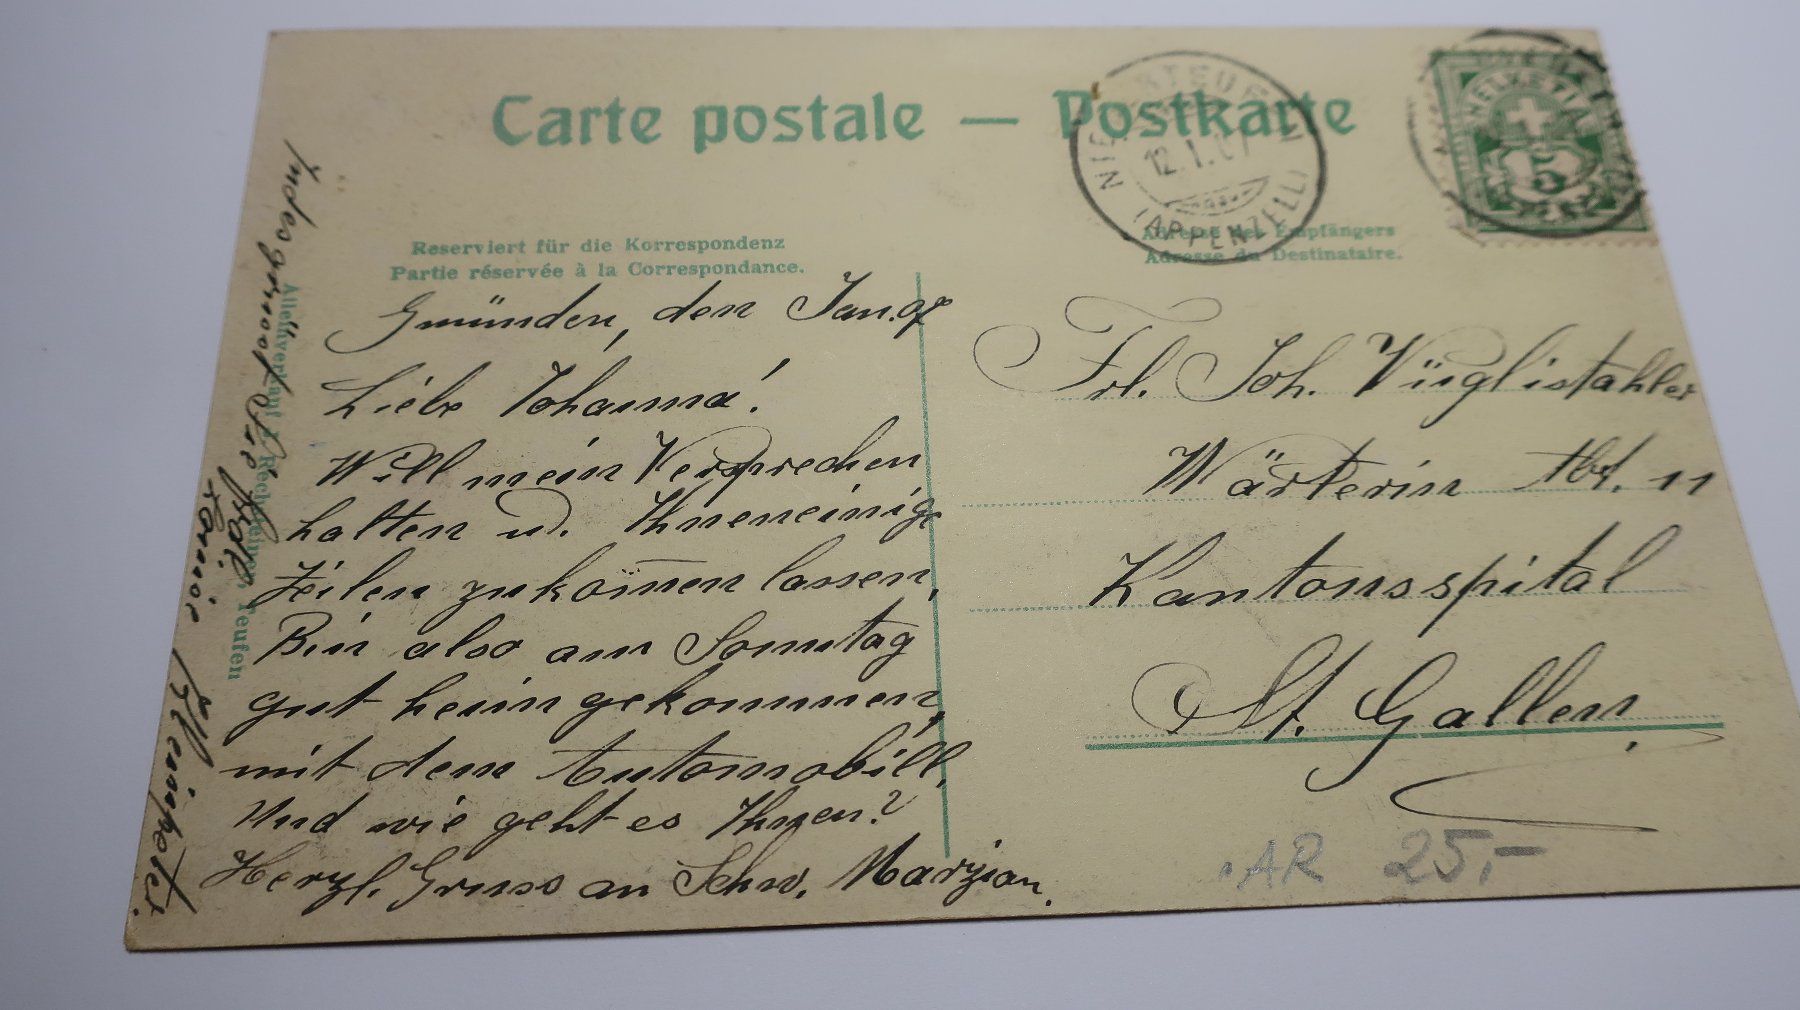 Carte postale — Postkarte
NIEDERTEUFEN
12.I.07
(APPENZELL)
HELVETIA
5
Reserviert für die Korrespondenz
Partie réservée à la Correspondance.
Adresse des Empfängers
Adresse du Destinataire.
Gmünden, den Jan.07
Liebe Johanna!
Will mein Versprechen
halten u. Ihnen einige
Zeilen zukom̄en lassen,
Bin also am Sonntag
gut heim gekommen,
mit dem Automobill,
Und wie geht es Ihnen?
Herzl. Gruss an Schw. Marzian.
Indes grüsst Sie
Kleinpeter.
Frl. Joh.
Wärterin Abt. 11
Kantonsspital
St. Gallen,
AR 25.-